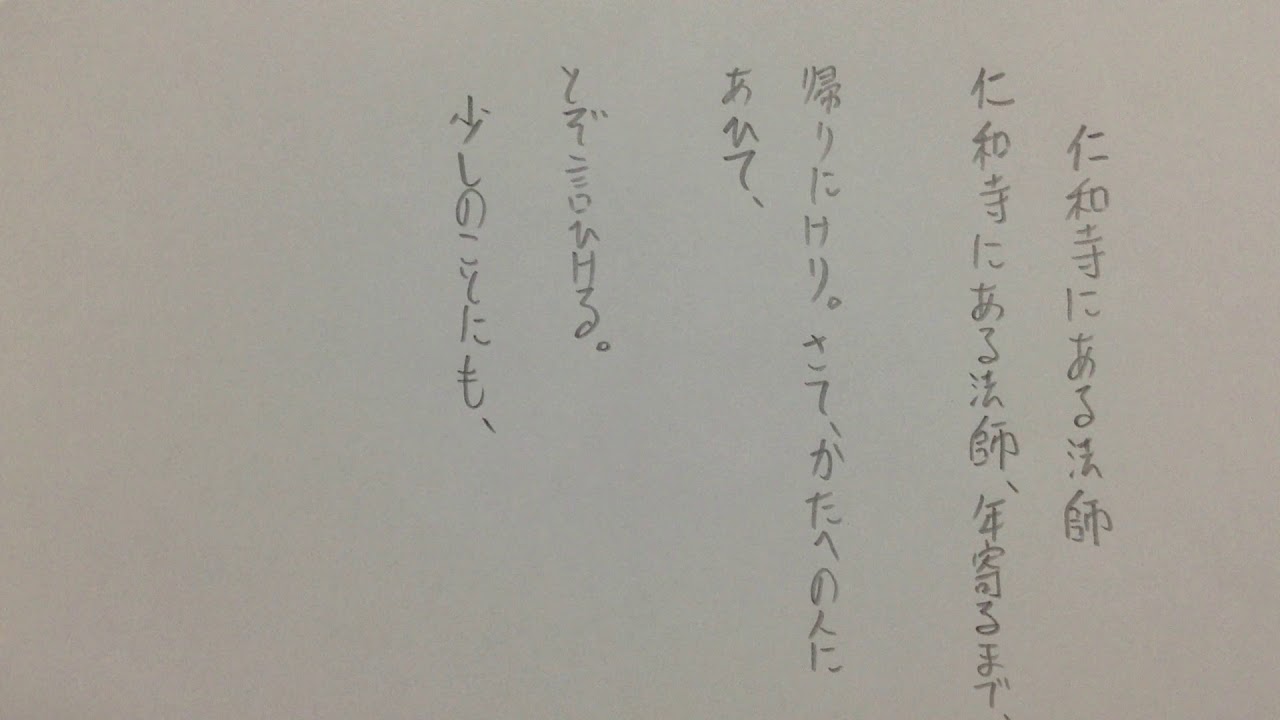 仁和寺にある法師
仁和寺にある法師、年寄るまで、
帰りにけり。さて、かたへの人に
あひて、
とぞ言ひける。
少しのことにも、